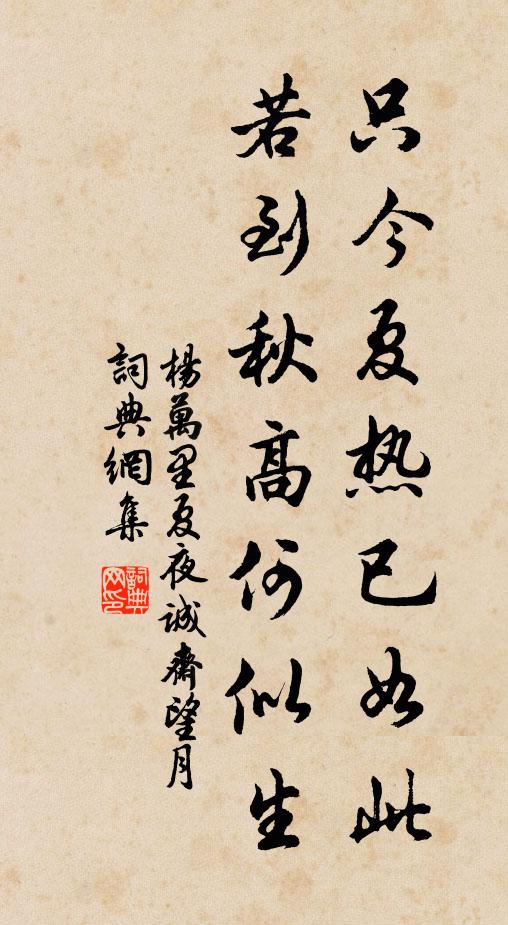 只今夏热已如此
若到秋高何似生
楊萬里夏夜誠齋望月
詞典網集
詞典网印